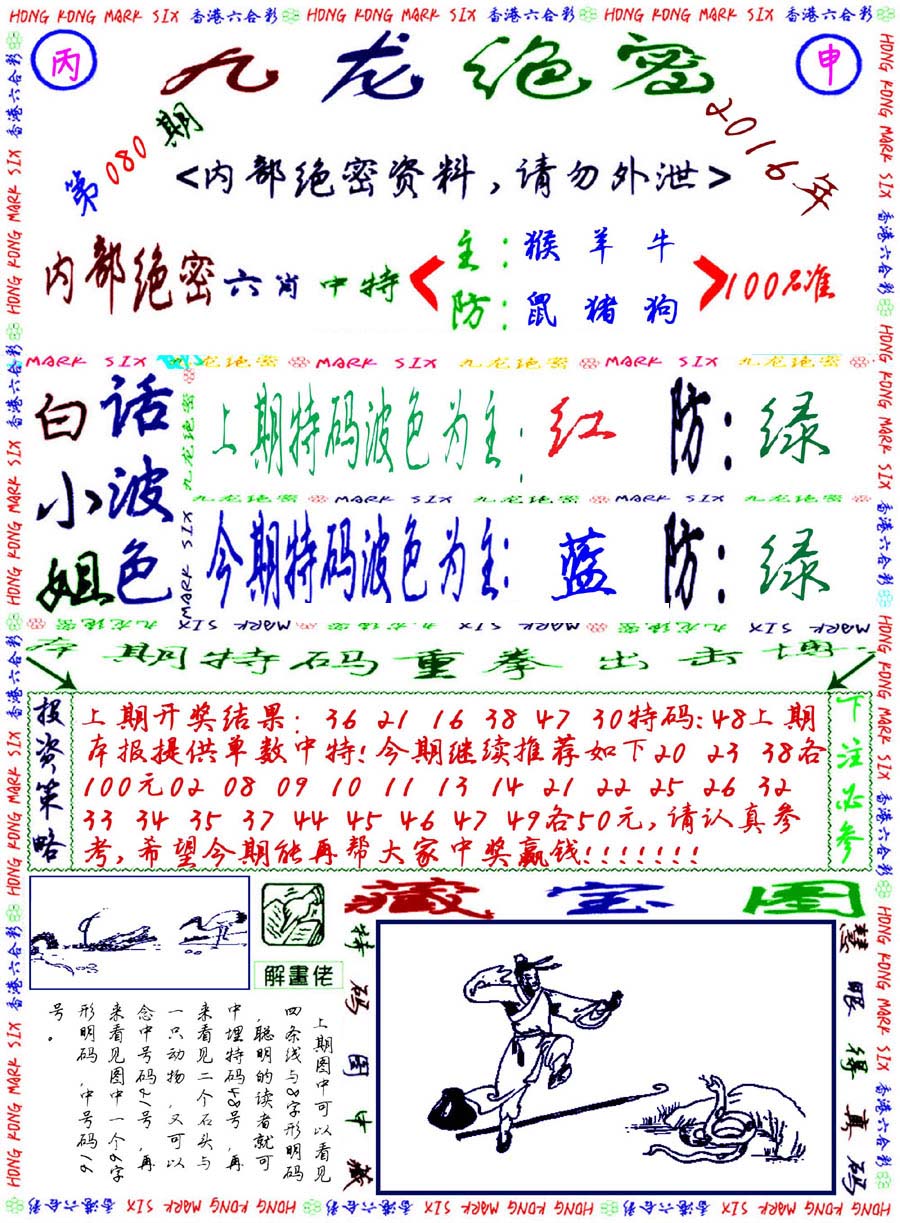 HONG KONG MARK SIX 香港六合彩 HONG KONG MARK SIX 香港六合彩 HONG KONG MARK SIX 香港六合彩
丙
九龙绝密
申
第080期
2016年
<内部绝密资料,请勿外泄>
内部绝密六肖中特
主:猴羊牛
防:鼠猪狗
100%准
MARK SIX 九龙绝密 MARK SIX 九龙绝密 MARK SIX 九龙绝密
白话
小波
姐色
上期特码波色为主:红 防:绿
九龙绝密 MARK SIX 九龙绝密 MARK SIX 九龙绝密
今期特码波色为主:蓝 防:绿
九龙绝密 MARK SIX 九龙绝密 MARK SIX 九龙绝密 MARK SIX
本期特码重拳出击博
投资策略
上期开奖结果:36 21 16 38 47 30特码:48上期
本报提供单数中特!今期继续推荐如下20 23 38各
100元02 08 09 10 11 13 14 21 22 25 26 32
33 34 35 37 44 45 46 47 49各50元,请认真参
考,希望今期能再帮大家中奖赢钱!!!!!!!
下注必参
藏宝图
解畫佬
特码图中藏
慧眼得真码
上期图中可以看见
四条线与8字形明码
,聪明的读者就可
中埋特码48号,再
来看见二个石头与
一只动物,又可以
念中号码21号,再
来看见图中一个6字
形明码,中号码16
号。
HONG KONG MARK SIX 香港六合彩 HONG KONG MARK SIX 香港六合彩 HONG KONG MARK SIX 香港六合彩